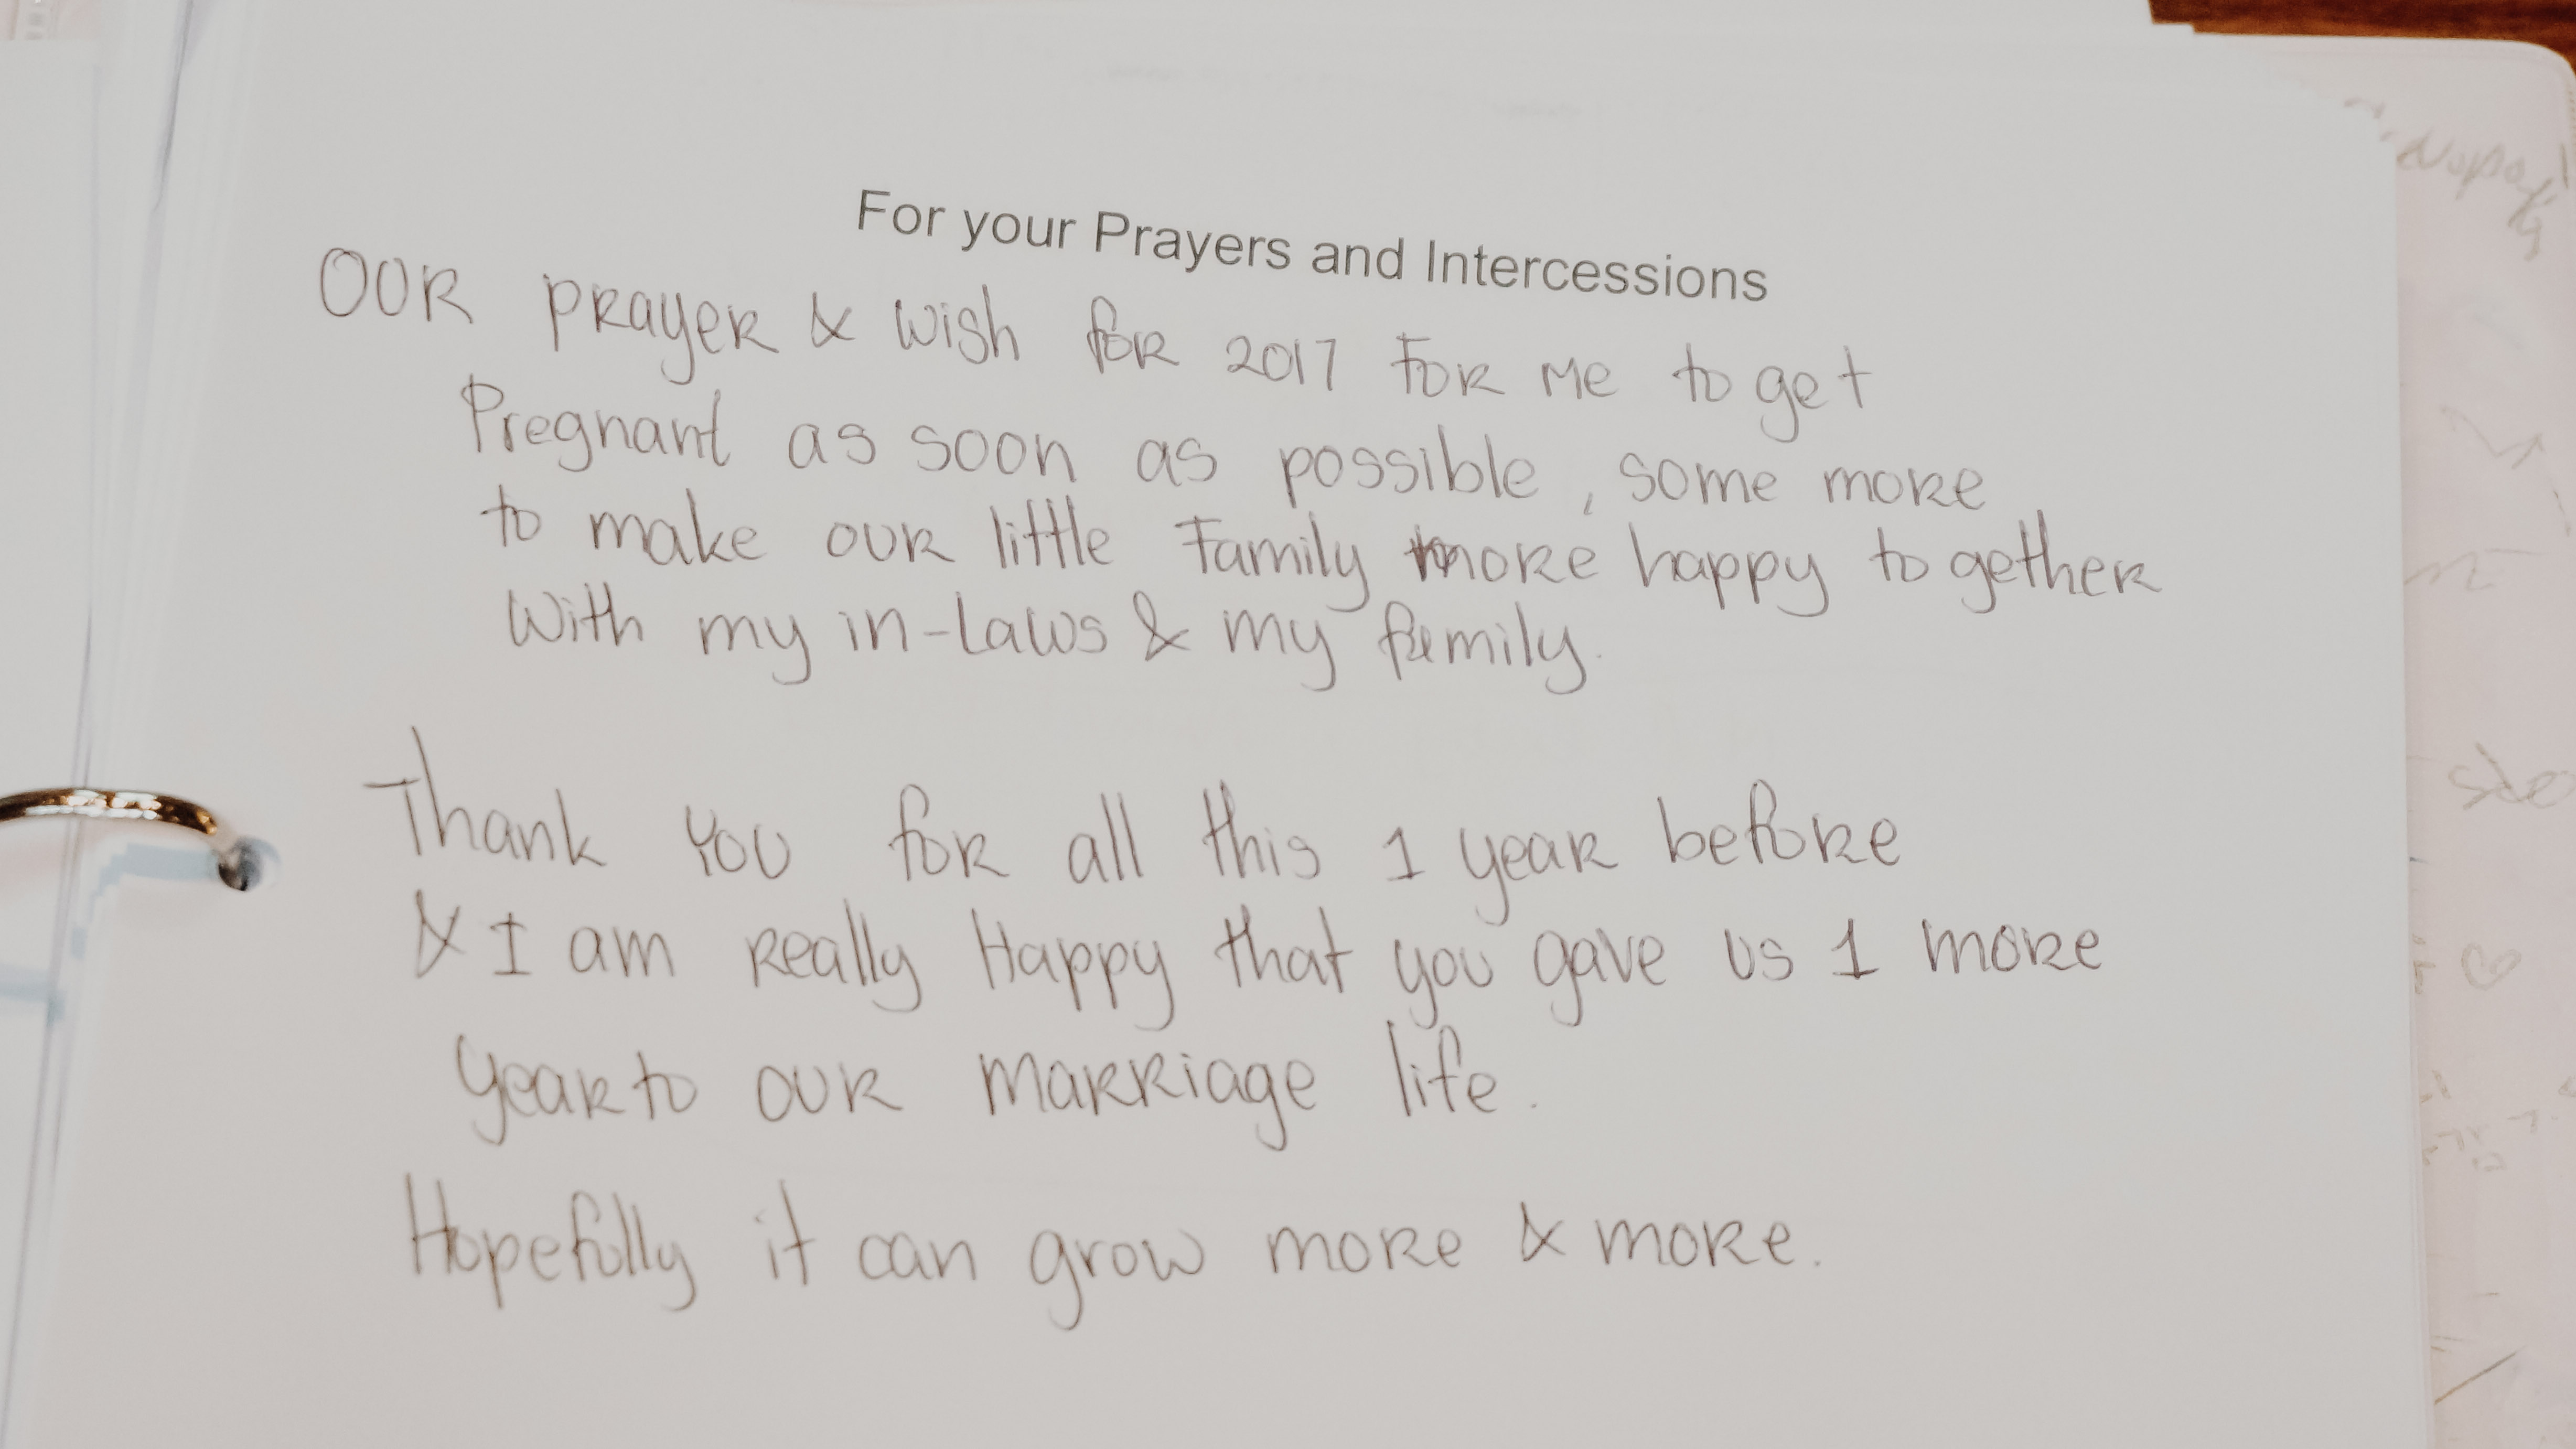 For your Prayers and Intercessions
OUR PRAYER & Wish for 2017 FOR Me to get
Pregnant as soon as possible, some more
to make our little Family more happy to gether
With my in-Laws & my family.
Thank You for all this 1 year before
& I am Really Happy that you gave us 1 more
year to our marriage life.
Hopefully it can grow more & more.